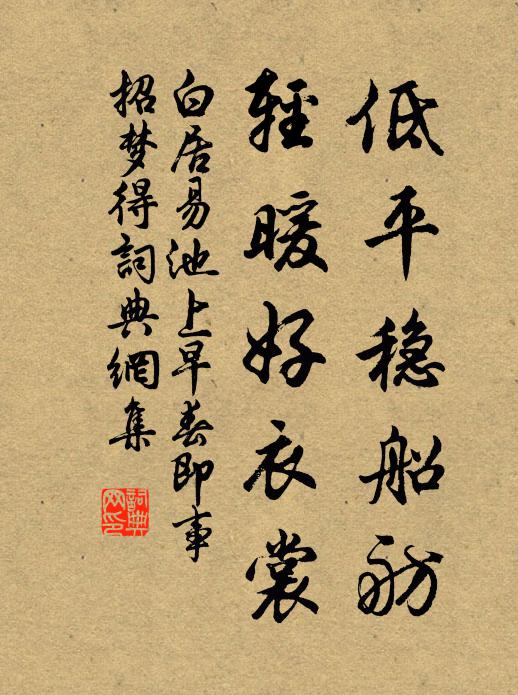 低平稳船舫
輕暖好衣裳
白居易池上早春即事
招梦得詞典網集
詞典
网印